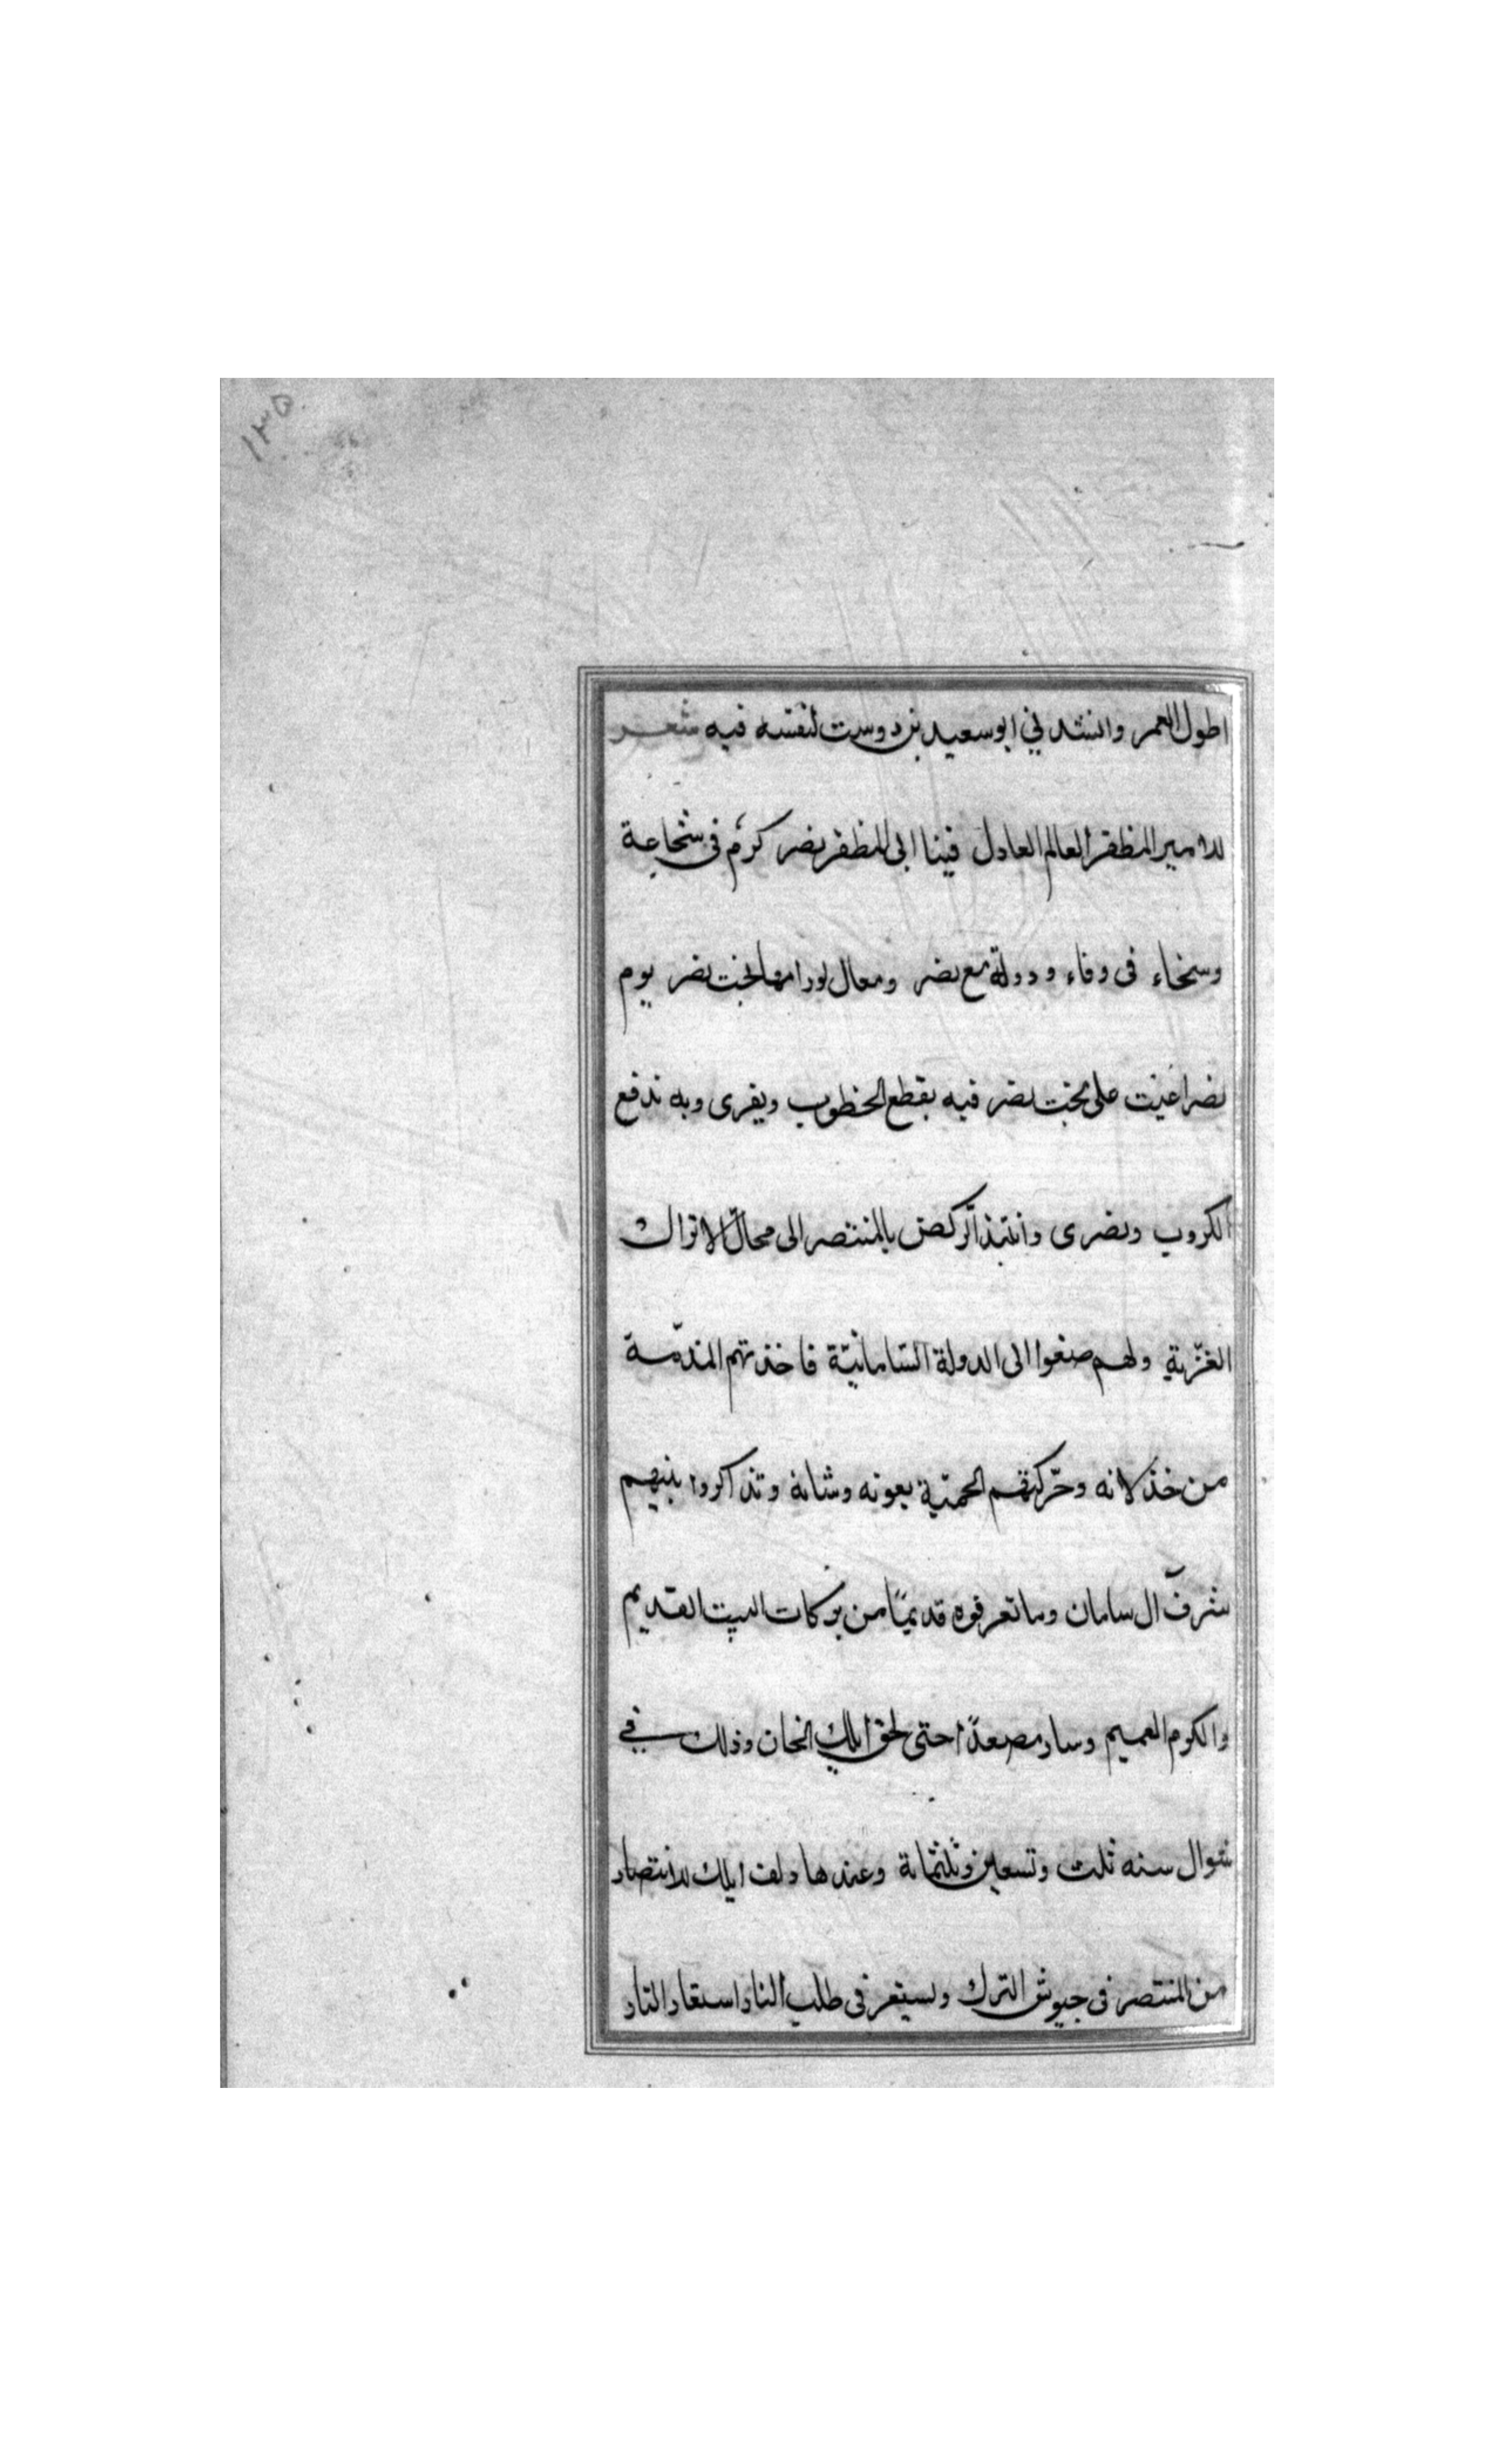 ١٣٥
اطول العمر وانشدني ابو سعيد بن دوست لنفسه فيه شعر
للامير المظفر العالم العادل فينا ابى المظفر نصر كرم فى شجاعة
وسخاء فى وفاء ودولة مع نصر ومعال لورامها بخت نصر يوم
نصر اعيت على بخت نصر فيه يقطع الخطوب ويفرى وبه ندفع
الكروب ونضرى وانتبذ الركض بالمنتصر الى محال الاتراك
الغزّية ولهم صغوا الى الدولة السّامانيّة فاخذتهم المذمّة
من خذلانه وحرّكتهم الحميّة بعونه وشانه وتذاكروا بينهم
شرف آل سامان وما تعرفوه قديمًا من بركات البيت القديم
والكرم العميم وسار مصعدًا حتى لحق ايلك الخان وذلك في
شوال سنه ثلث وتسعين وثلثمائة وعندها دلف ايلك للانتصار
من المنتصر فى جيوش الترك يستعر فى طلب الثار استعار النار